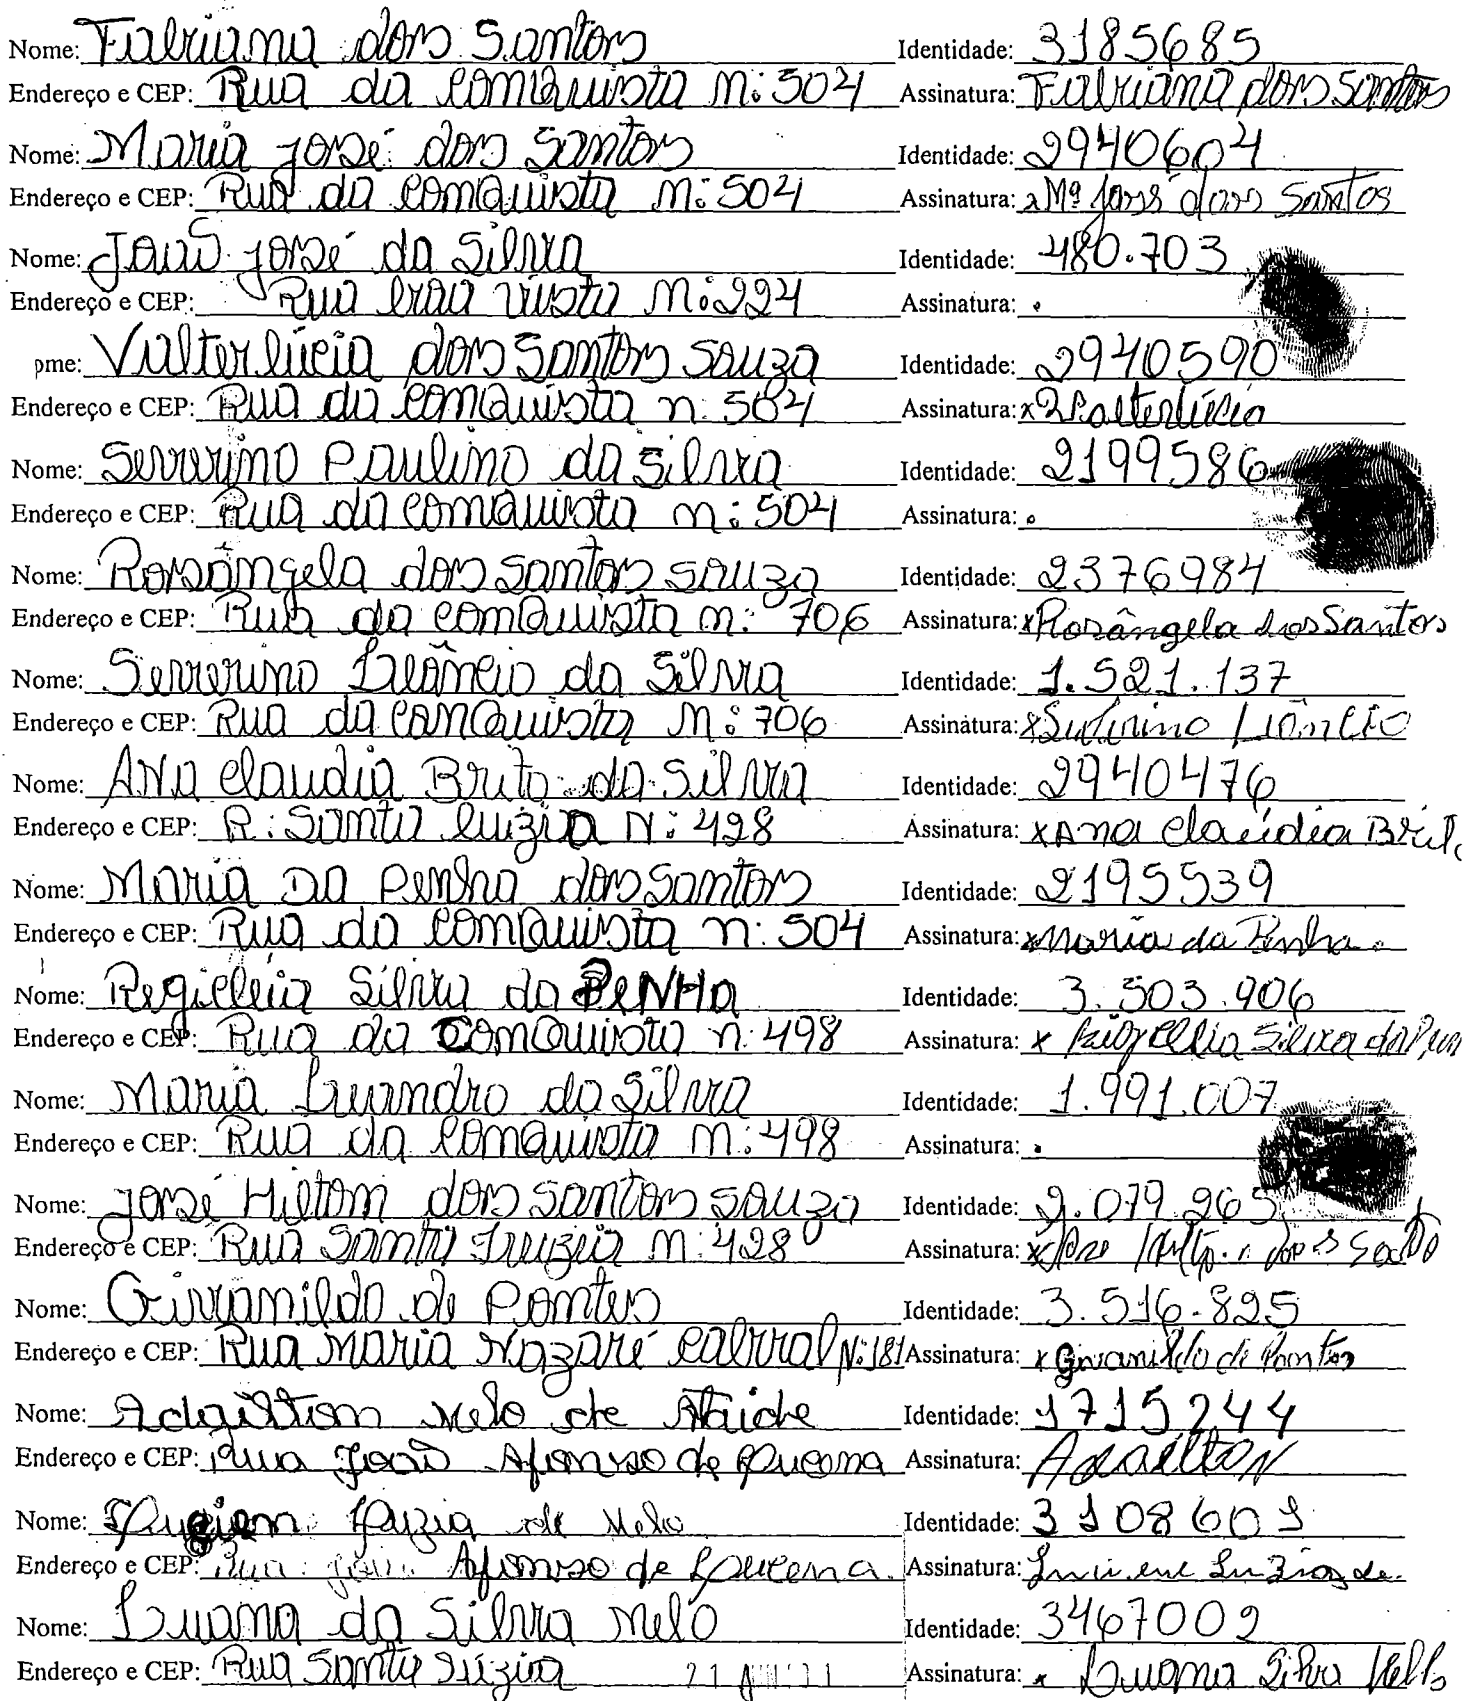 Nome: Fabriana dos Santos Identidade: 3185685
Endereço e CEP: Rua da Comquista N: 504 Assinatura: Fabriana dos Santos
Nome: Maria José dos Santos Identidade: 2940604
Endereço e CEP: Rua da Comquista N: 504 Assinatura: x Mª José dos Santos
Nome: João José da Silva Identidade: 480.703
Endereço e CEP: Rua Boa Vista N: 224 Assinatura:
ome: Valterlúcia dos Santos Souza Identidade: 2940590
Endereço e CEP: Rua da Comquista n: 504 Assinatura: x Valterlúcia
Nome: Severino Paulino da Silva Identidade: 2199586
Endereço e CEP: Rua da Comquista n: 504 Assinatura:
Nome: Rosângela dos Santos Souza Identidade: 2376984
Endereço e CEP: Rua da Comquista n: 706 Assinatura: x Rosângela dos Santos
Nome: Severino Leôncio da Silva Identidade: 1.521.137
Endereço e CEP: Rua da Conquista N: 706 Assinatura: x Severino Liôncio
Nome: Ana Claudia Brito da Silva Identidade: 2940476
Endereço e CEP: R: Santa Luizia N: 428 Assinatura: x Ana Claúdia Brit
Nome: Maria Da Penha dos Santos Identidade: 2195539
Endereço e CEP: Rua da Comquista n: 504 Assinatura: x Maria da Penha.
Nome: Regicleia Silva da Penha Identidade: 3.503.906
Endereço e CEP: Rua da Comquista n: 498 Assinatura: x Silva da Pen
Nome: Maria Luandro da Silva Identidade: 1.991.007
Endereço e CEP: Rua da Comquista N: 498 Assinatura:
Nome: José Hiltom dos Santos Souza Identidade: 2.079.265
Endereço e CEP: Rua Santa Luizia N: 428 Assinatura: x
Nome: Givanildo de Pontes Identidade: 3.516-825
Endereço e CEP: Rua Maria Nazaré Cabral N: 181 Assinatura: x Givanildo de Pontes
Nome: Adailton Melo de Ataide Identidade: 1715244
Endereço e CEP: Rua João Afonso de Lucena Assinatura: Adailton
Nome: Luzia de Melo Identidade: 3108601
Endereço e CEP: Rua João Afonso de Lucena. Assinatura: Luzia de
Nome: Luana da Silva Melo Identidade: 3467002
Endereço e CEP: Rua Santa Luzia Assinatura: x Luana Silva Mello